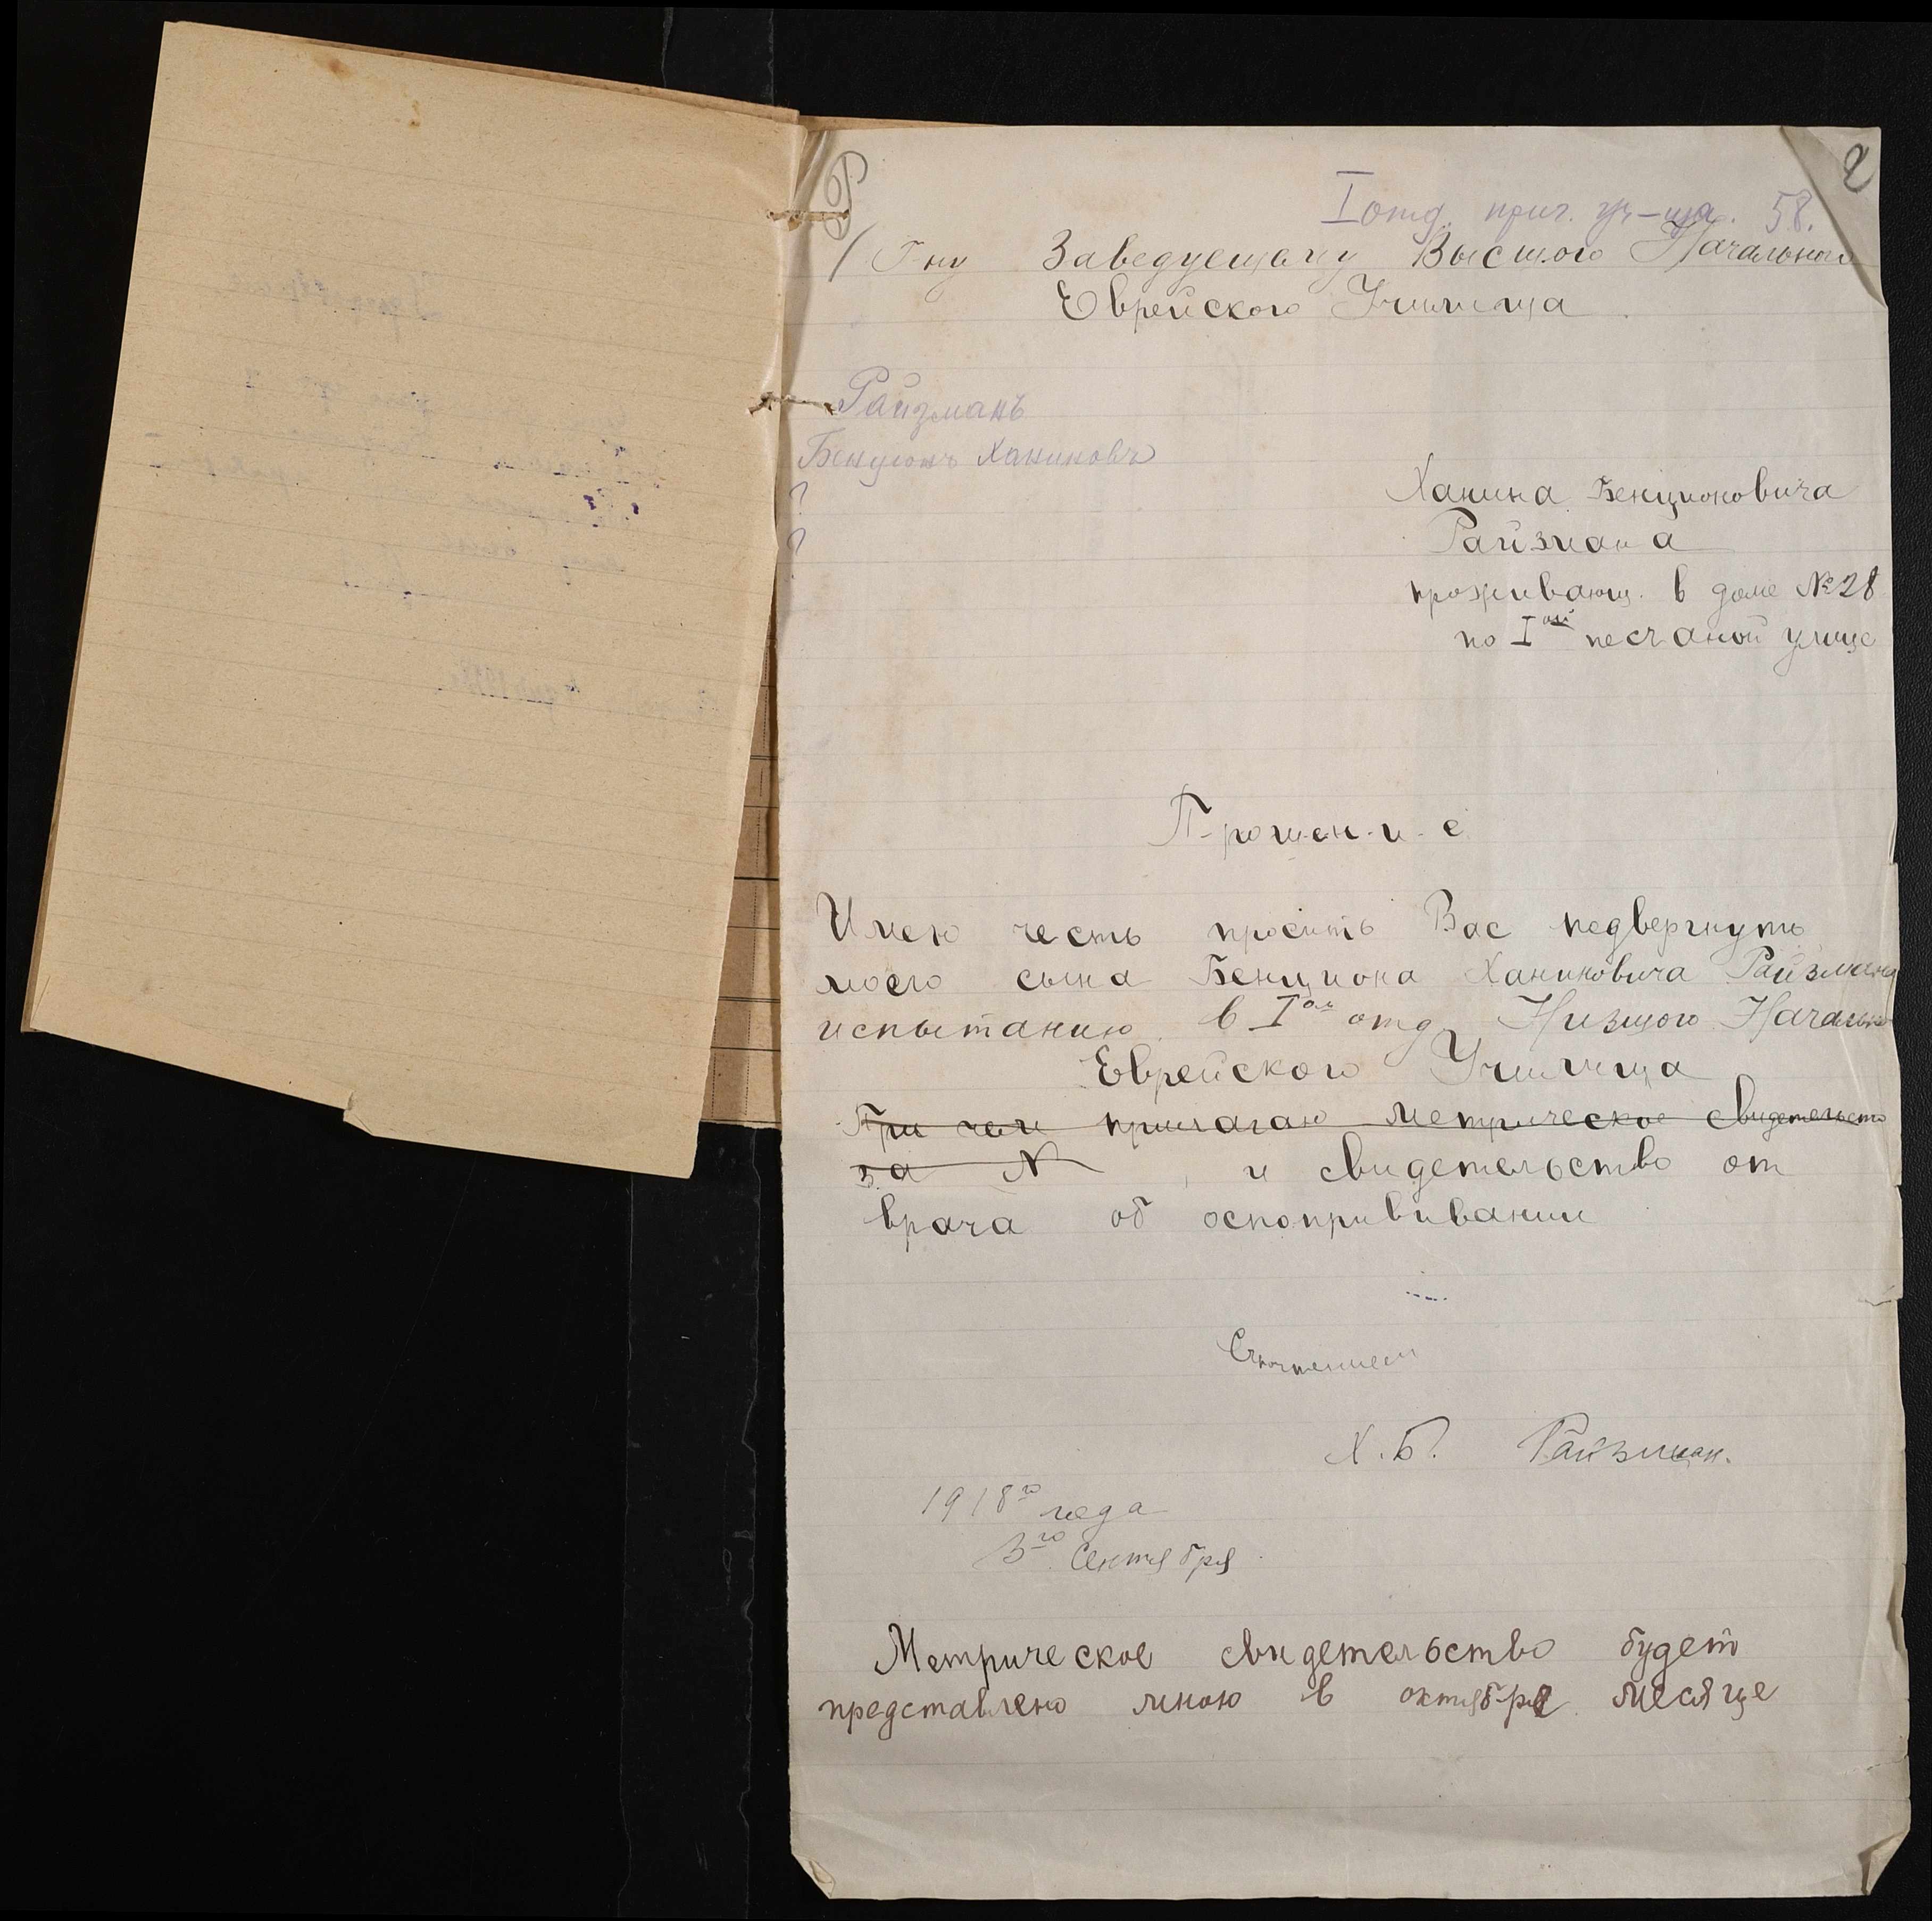 2
I отд. приг. уч-ща. 58.
Г-ну Заведуещему Высшого Начального
Еврейского Училища
Райзманъ
Бенционъ Ханиновъ
?
?
Ханина Бенционовича
Райзмана
проживающ. в доме №28
по I ой песчаной улице
П-рошен-и-е
Имею честь просить Вас подвергнуть
моего сына Бенциона Ханиновича Райзмана
испытанию в I ое отд Низшого Начально
Еврейского Училища
При чем прилагаю метрическое свидетельство
за №, и свидетельство от
врача об оспопрививании
С почтением
Х. Б. Райзман.
1918 го года
3 го Сентября.
Метрическое свидетельство будет
представлено мною в октябре месяце